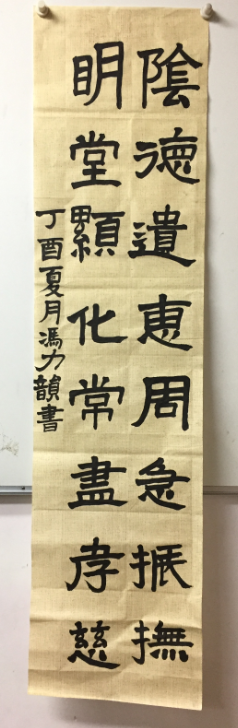 陰德遺惠周急振撫
明堂顯化常盡孝慈
丁酉夏月馮力韻書